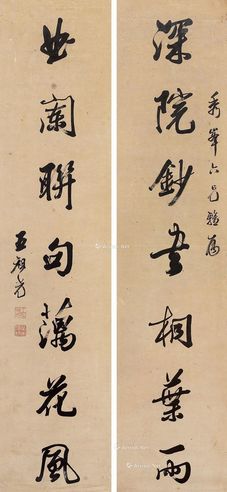 秀峯六兄雅属
深院鈔書桐葉雨
曲闌聯句藕花風